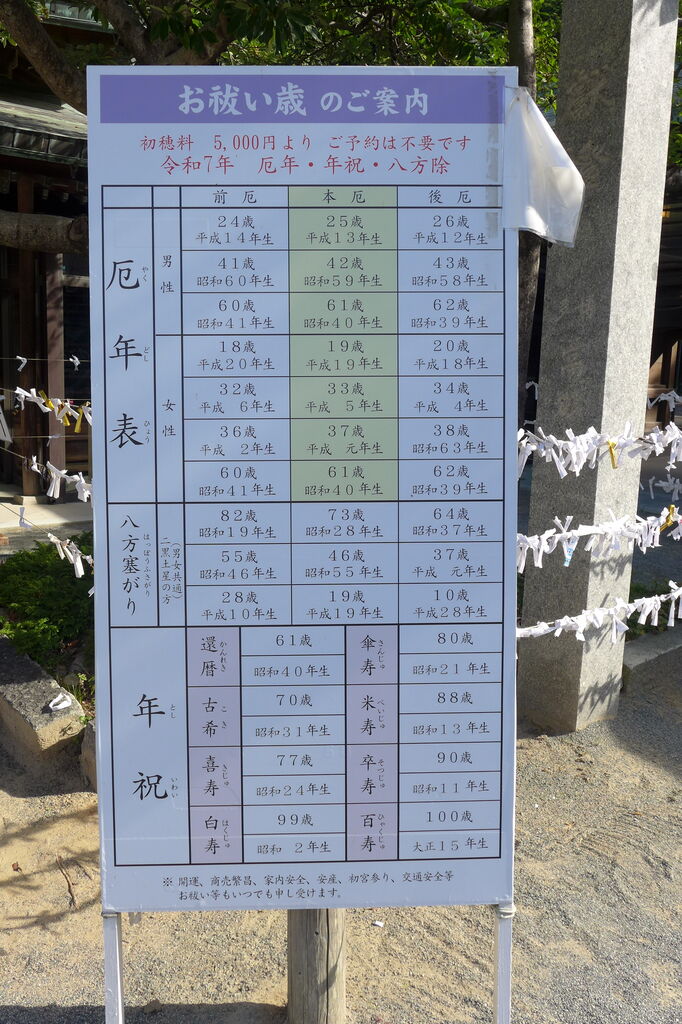 お祓い歳 のご案内
初穂料 5,000円より ご予約は不要です
令和7年 厄年・年祝・八方除
前厄 本厄 後厄
厄年表
やく どし ひょう
男性
24歳 25歳 26歳
平成14年生 平成13年生 平成12年生
41歳 42歳 43歳
昭和60年生 昭和59年生 昭和58年生
60歳 61歳 62歳
昭和41年生 昭和40年生 昭和39年生
女性
18歳 19歳 20歳
平成20年生 平成19年生 平成18年生
32歳 33歳 34歳
平成 6年生 平成 5年生 平成 4年生
36歳 37歳 38歳
平成 2年生 平成 元年生 昭和63年生
60歳 61歳 62歳
昭和41年生 昭和40年生 昭和39年生
八方塞がり
はっぽうふさがり
(男女共通)
二黒土星の方
82歳 73歳 64歳
昭和19年生 昭和28年生 昭和37年生
55歳 46歳 37歳
昭和46年生 昭和55年生 平成 元年生
28歳 19歳 10歳
平成10年生 平成19年生 平成28年生
年祝
とし いわい
還暦 かんれき 61歳 傘寿 さんじゅ 80歳
昭和40年生 昭和21年生
古希 こき 70歳 米寿 べいじゅ 88歳
昭和31年生 昭和13年生
喜寿 きじゅ 77歳 卒寿 そつじゅ 90歳
昭和24年生 昭和11年生
白寿 はくじゅ 99歳 百寿 ひゃくじゅ 100歳
昭和 2年生 大正15年生
※ 開運、商売繁昌、家内安全、安産、初宮参り、交通安全等
お祓い等もいつでも申し受けます。